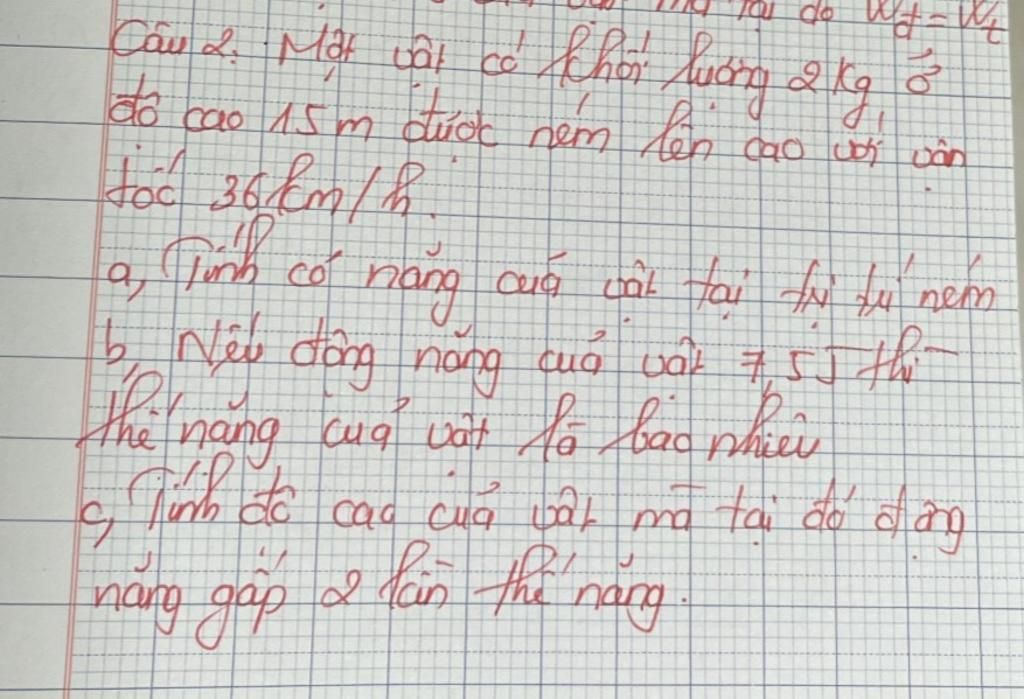 mà tại đó Wđ = Wt
Câu 2. Một vật có khối lượng 2 kg, ở
độ cao 15 m được ném lên cao với vận
tốc 36 km/h.
a, Tính cơ năng của vật tại vị trí ném
b, Nếu động năng của vật 7,5 J thì
thế năng của vật là bao nhiêu
c, Tính độ cao của vật mà tại đó động
năng gấp 2 lần thế năng.